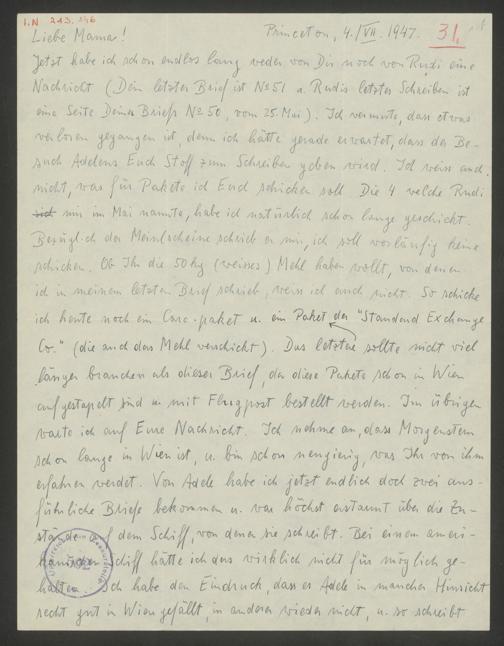 I.N 213.296
31.
Princeton, 4./VII. 1947.
Liebe Mama!
Jetzt habe ich schon endlos lang weder von Dir noch von Rudi eine
Nachricht (Dein letzter Brief ist No 51 u. Rudis letztes Schreiben ist
eine Seite Deines Briefs No 50, vom 25. Mai). Ich vermute, dass etwas
verloren gegangen ist, denn ich hätte gerade erwartet, dass der Be-
such Adelens Euch Stoff zum Schreiben geben wird. Ich weiss auch
nicht, was für Pakete ich Euch schicken soll. Die 4 welche Rudi
mir im Mai nannte, habe ich natürlich schon lange geschickt.
Bezüglich der schrieb er mir, ich soll vorläufig keine
schicken. Ob Ihr die 50 kg (weisses) Mehl haben wollt, von denen
ich in meinem letzten Brief schrieb, weiss ich auch nicht. So schicke
ich heute noch ein Care-paket u. ein Paket der "Standard Exchange
Co." (die auch das Mehl verschickt). Das letztere sollte nicht viel
länger brauchen als dieser Brief, da diese Pakete schon in Wien
aufgestapelt sind u. mit Flugpost bestellt werden. Im übrigen
warte ich auf Eure Nachricht. Ich nehme an, dass Morgenstern
schon lange in Wien ist, u. bin schon neugierig, was Ihr von ihm
erfahren werdet. Von Adele habe ich jetzt endlich doch zwei aus-
führliche Briefe bekommen u. war höchst erstaunt über die Zu-
stände auf dem Schiff, von denen sie schreibt. Bei einem ameri-
kanischen Schiff hätte ich das wirklich nicht für möglich ge-
halten. Ich habe den Eindruck, dass es Adele in mancher Hinsicht
recht gut in Wien gefällt, in anderer wieder nicht, u. so schreibt